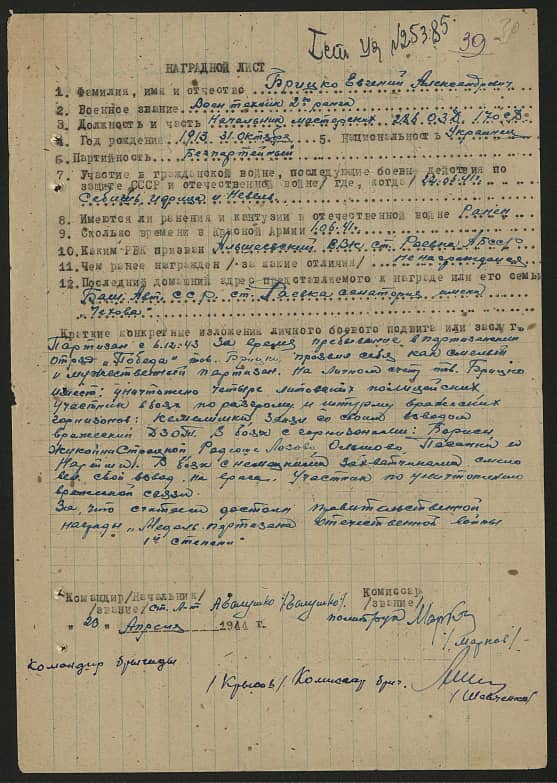 Гст. Уд №253.85.
39
НАГРАДНОЙ ЛИСТ
1. Фамилия, имя и отчество Брицко Евгений Александрович
2. Военное звание Воентехник 2го ранга
3. Должность и часть Начальник мастерских 286 О.З.Д. 170 с.д.
4. Год рождения 1913 31 октября 5. Национальность Украинец
6. Партийность Беспартейный
7. Участие в гражданской войне, последующие боевые действия по
защите СССР и отечественной войне/ где, когда/ 22.06.41г.
Себиж, идрица и Невель
8. Имеются ли ранения и кантузии в отечественной войне Ранен
9. Сколько времени в Красной Армии 1.06.41г.
10. Каким РВК призван Альшеевский РВК ст. Раевка, АБССР
11. Чем ранее награжден /за какие отличия/ Не награждался
12. Последний домашний адрес представляемого к награде или его семьи
Баш. Авт. ССР. ст. Раевка санатория имени
"Чехова"
Краткие конкретные изложения личного боевого подвига или заслуг.
Партизан с 6.12.43 За время пребывание в партозанском
отряд "Победа" тов. Брицко, проявил себя как смелый
и мужественный партизан. На личном счету тов. Брицко
имеет: уничтожено четыре литовских полицейских
Участник в боях по разгрому и штурму вражеских
горнизонов: Кемелишки Занял со своим взводом
вражеский ДЗОТ. В боях с горнизонами:
Жукойни Страцкой
В боях с немецкими захватчиками смело
вел свой взвод на врага. Участник по уничтожению
вражеской связи.
За, что считаем достоин правительственной
награды "Медаль партизана Отечественной войны
1й степени"
Командир/Начальник/ Комиссар
/звание/ ст. л-т Авалушко /звание/
политрук Марков
"20" Апреля 1944 г.
/Марков/
Командир бригады
/Крысов/ Комиссар бриг.
/Шевченко/